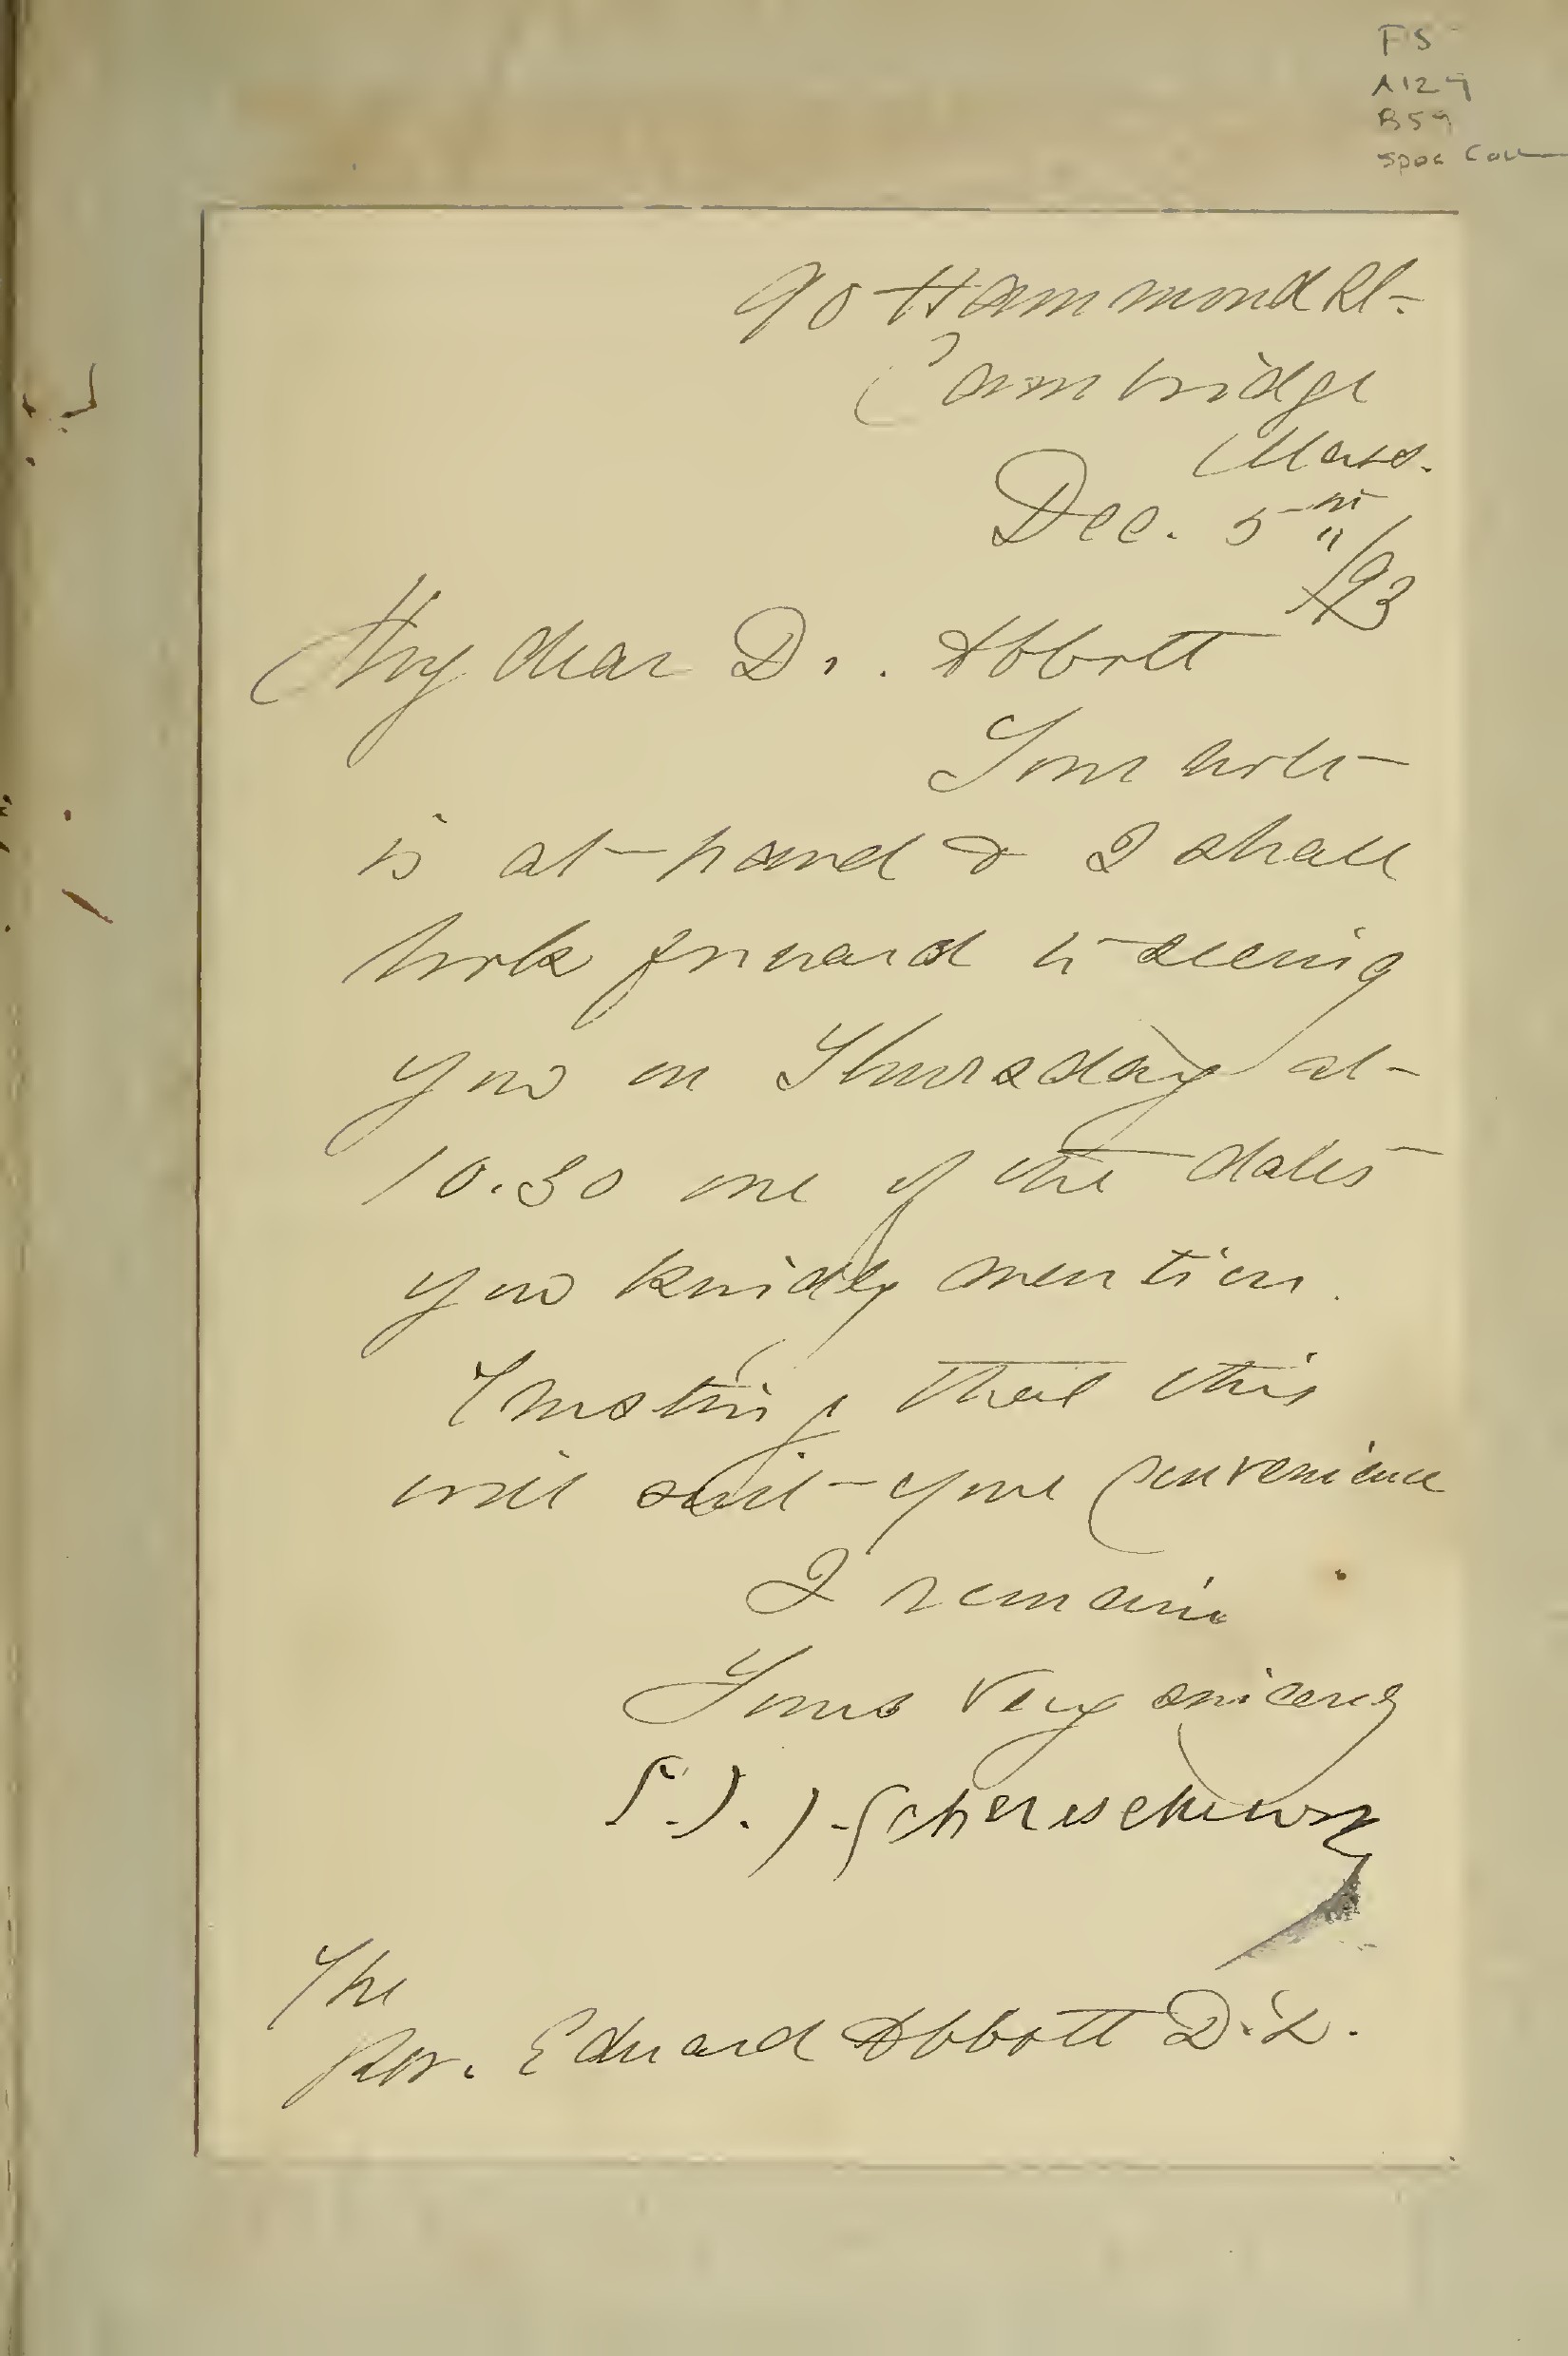 FS
A127
B59
Spec Coll
90 Hammond St.
Cambridge
Mass.
Dec. 5th /93
My dear Dr. Abbott
Your note
is at hand & I shall
look forward to seeing
you on Thursday at
10.30 one of the dates
you kindly mention.
Trusting that this
will suit your convenience
I remain
Yours very sincerely
S. I. J. Schereschewsky
The
Rev. Edward Abbott D.D.